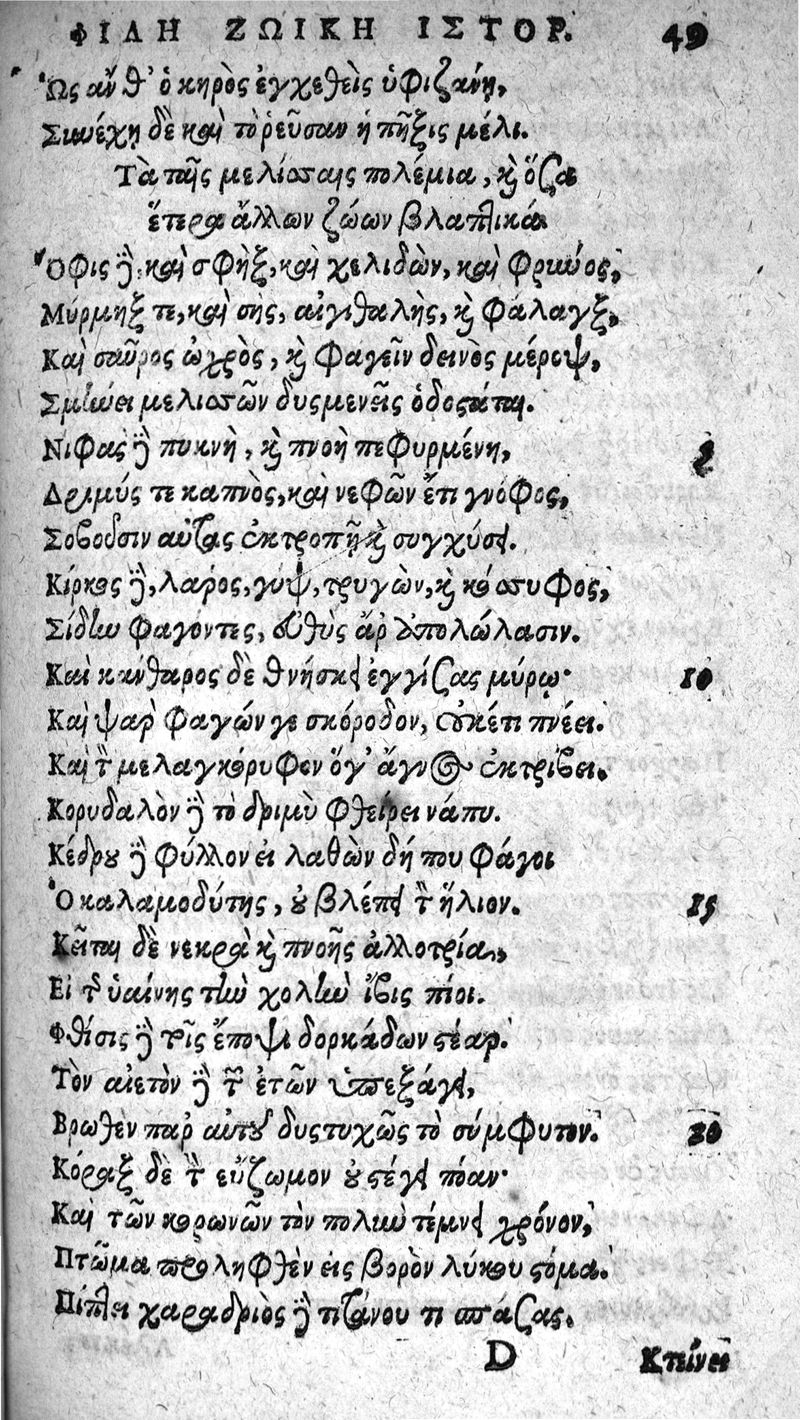 ΦΙΛΗ ΖΩΙΚΗ ΙΣΤΟΡ. 49
Ὡς ἂν θ' ὁ κηρὸς ἐγχεθεὶς ὑφιζάνῃ,
Συνέχῃ δὲ καὶ τὸ ῥεῦσαν ἡ πῆξις μέλι.
Τὰ ταῖς μελίσσαις πολέμια, καὶ ὅσα
ἕτερα ἄλλων ζώων βλαπτικά.
Ὄφις δὲ, καὶ σφὴξ, καὶ χελιδὼν, καὶ φρῦνος,
Μύρμηξ τε, καὶ σὴς, αἰγιθαλὴς, καὶ φάλαγξ,
Καὶ σαῦρος ὠχρὸς, καὶ φαγεῖν δεινὸς μέροψ,
Σμήνει μελισσῶν δυσμενεῖς ὁδοστάται.
Νιφὰς δὲ πυκνὴ, καὶ πνοὴ πεφυρμένη, 5
Δριμύς τε καπνὸς, καὶ νεφῶν ἔτι γνόφος,
Σοβοῦσιν αὐτὰς ἐκτροπῇ καὶ συγχύσει.
Κίρκος δὲ, λάρος, γὺψ, τρυγὼν, καὶ κόσσυφος,
Σίδην φαγόντες, εὐθὺς ἂρ ἀπολώλασιν.
Καὶ κάνθαρος δὲ θνήσκει ἐγγίσας μύρῳ· 10
Καὶ ψὰρ φαγών γε σκόροδον, οὐκέτι πνέει.
Καὶ τὸν μελαγκόρυφον ὅγ' ἄγνος ἐκτρίβει.
Κορυδαλὸν δὲ τὸ δριμὺ φθείρει νάπυ.
Κέδρου δὲ φύλλον εἰ λαθὼν δή που φάγοι
Ὁ καλαμοδύτης, οὐ βλέπει τὸν ἥλιον. 15
Κεῖται δὲ νεκρὰ καὶ πνοῆς ἀλλοτρία,
Εἰ τῆς ὑαίνης τὴν χολὴν ἶβις πίοι.
Φθίσις δὲ τοῖς ἔποψι δορκάδων στέαρ.
Τὸν αἰετὸν δὲ τῶν ἐτῶν ὑπεξάγει,
Βρωθὲν παρ' αὐτοῦ δυστυχῶς τὸ σύμφυτον. 20
Κόραξ δὲ τὸν εὔζωμον οὐ στέγει πόαν·
Καὶ τῶν κορωνῶν τὸν πολὺν τέμνει χρόνον,
Πτῶμα προληφθὲν εἰς βορὸν λύκου στόμα.
Πίπτει χαραδριὸς δὲ τιτάνου τι σπάσας.
D Κτείνει